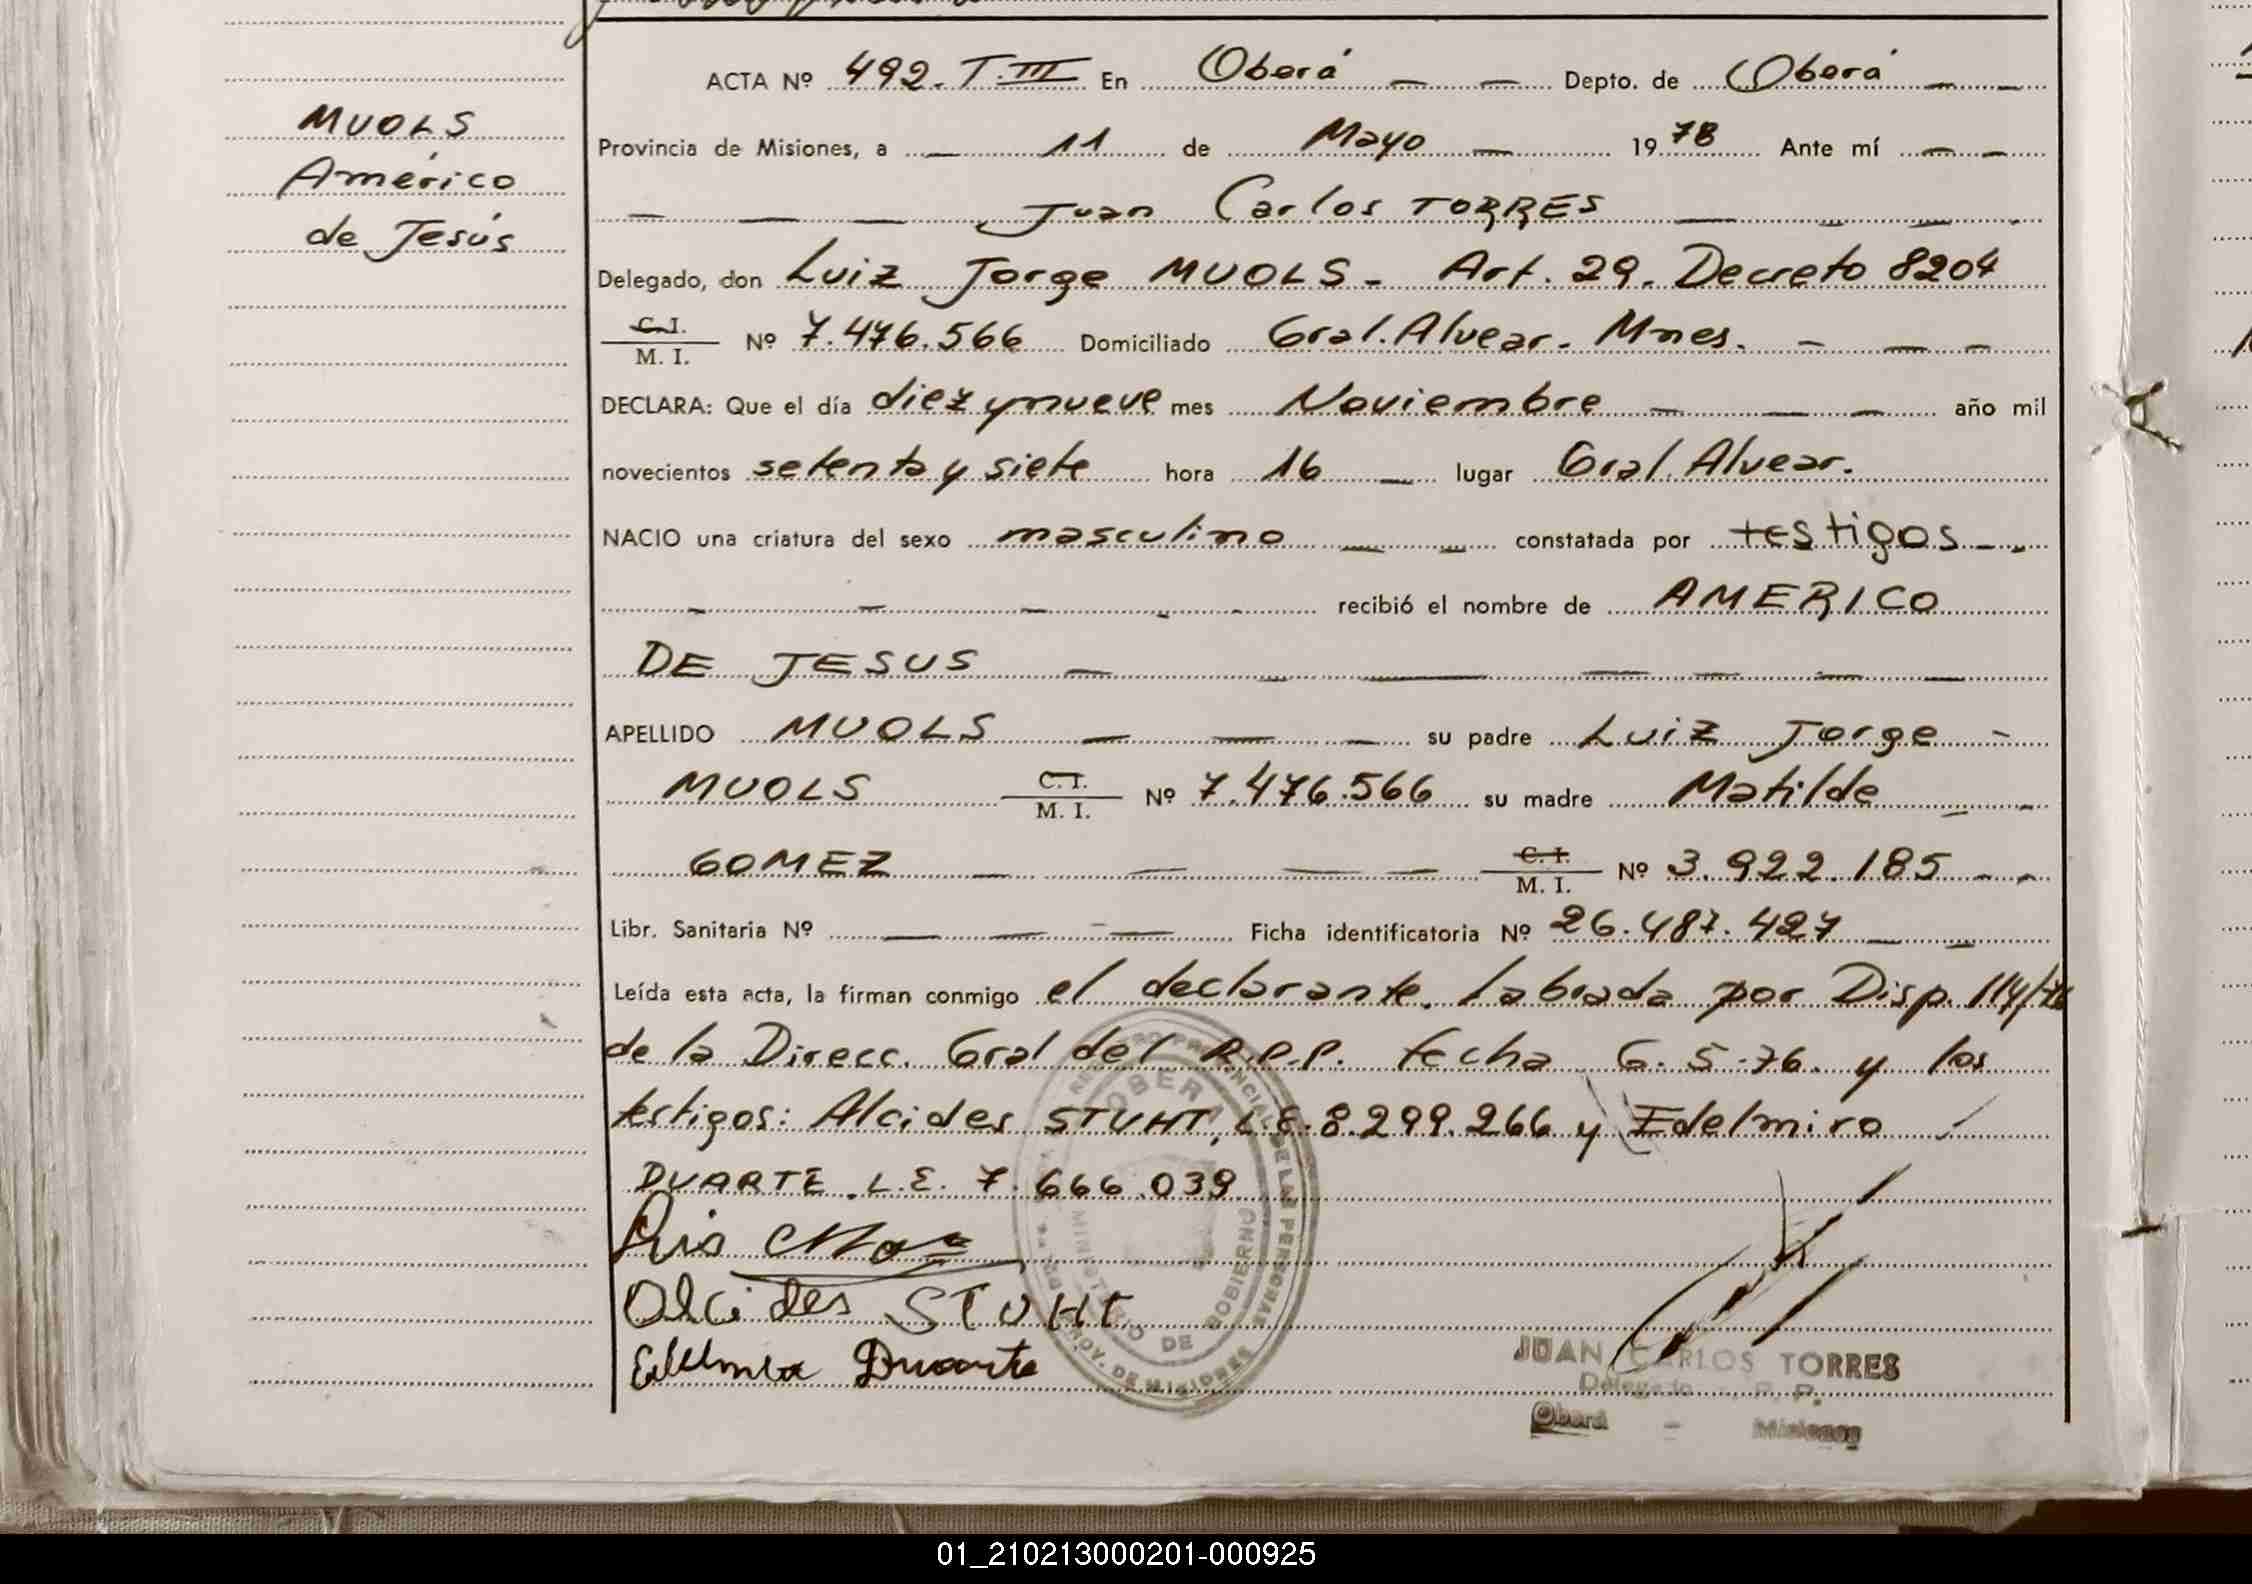 MUOLS
Américo
de Jesús
ACTA Nº 492. T. III En Oberá — — Depto. de Oberá — —
Provincia de Misiones, a — 11 de Mayo — 1978 Ante mí — —
— — — Juan Carlos TORRES — — — -
Delegado, don Luiz Jorge MUOLS - Art. 29. Decreto 8204
C. I.
M. I. Nº 7.476.566 Domiciliado Gral. Alvear. Mnes. - — -
DECLARA: Que el día diez y nueve mes Noviembre — — — año mil
novecientos setenta y siete hora 16 — lugar Gral. Alvear.
NACIO una criatura del sexo masculino — — constatada por testigos - -
- — - - - recibió el nombre de AMERICO
DE JESUS — - — — — — —
APELLIDO MUOLS — — — su padre Luiz Jorge -
MUOLS C. I.
M. I. Nº 7.476.566 su madre Matilde - -
GOMEZ — — — — C. I.
M. I. Nº 3.922.185 - -
Libr. Sanitaria Nº — — — Ficha identificatoria Nº 26.487.427 — -
Leída esta acta, la firman conmigo el declarante. Labrada por Disp. 114/76
de la Direcc. Gral del R.P.P. fecha 6.5.76. y los
testigos: Alcides STUHT, L.E. 8.299.266 y Edelmiro
DUARTE. L.E. 7.666.039
Luis
Alcides STUHT
Duarte
REGISTRO PROVINCIAL DE LAS PERSONAS
OBERA
MINISTERIO DE GOBIERNO
PROV. DE MISIONES
JUAN CARLOS TORRES
Delegado R. P. P.
Oberá - Misiones
01_210213000201-000925